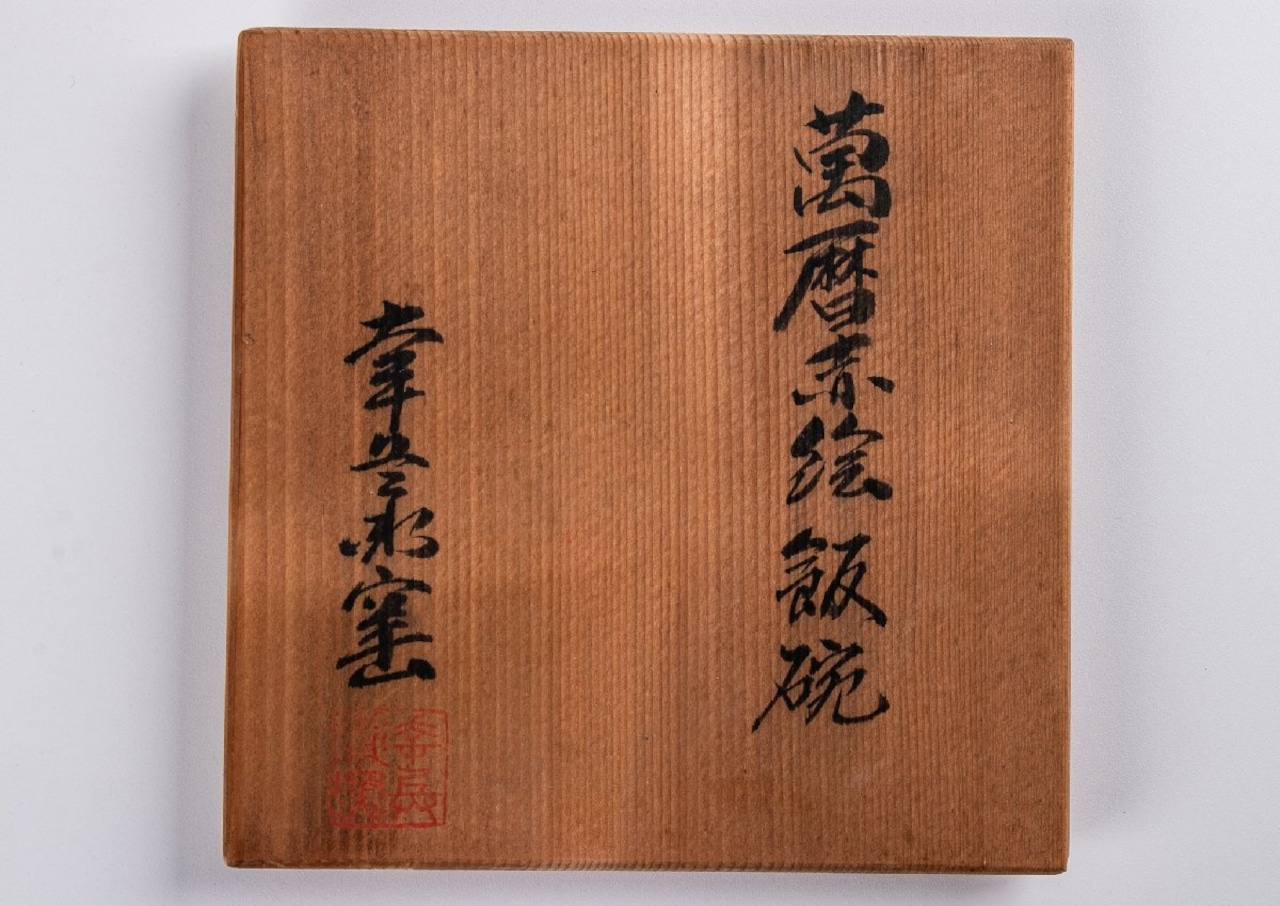 萬暦赤絵 飯碗
幸兵衛窯